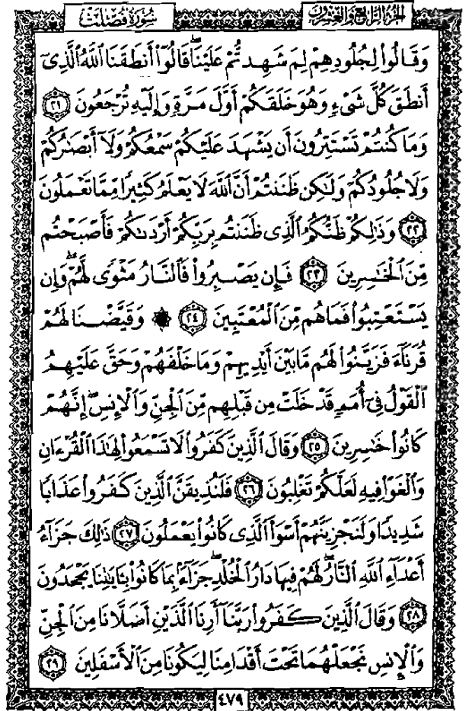 الجزء الرابع والعشرون
سورة فصلت
وَقَالُوا۟ لِجُلُودِهِمْ لِمَ شَهِدتُّمْ عَلَيْنَا ۖ قَالُوٓا۟ أَنطَقَنَا ٱللَّهُ ٱلَّذِىٓ
أَنطَقَ كُلَّ شَىْءٍ وَهُوَ خَلَقَكُمْ أَوَّلَ مَرَّةٍ وَإِلَيْهِ تُرْجَعُونَ ٢١
وَمَا كُنتُمْ تَسْتَتِرُونَ أَن يَشْهَدَ عَلَيْكُمْ سَمْعُكُمْ وَلَآ أَبْصَـٰرُكُمْ
وَلَا جُلُودُكُمْ وَلَـٰكِن ظَنَنتُمْ أَنَّ ٱللَّهَ لَا يَعْلَمُ كَثِيرًا مِّمَّا تَعْمَلُونَ
٢٢ وَذَٰلِكُمْ ظَنُّكُمُ ٱلَّذِى ظَنَنتُم بِرَبِّكُمْ أَرْدَىٰكُمْ فَأَصْبَحْتُم
مِّنَ ٱلْخَـٰسِرِينَ ٢٣ فَإِن يَصْبِرُوا۟ فَٱلنَّارُ مَثْوًى لَّهُمْ ۖ وَإِن
يَسْتَعْتِبُوا۟ فَمَا هُم مِّنَ ٱلْمُعْتَبِينَ ٢٤ ۞ وَقَيَّضْنَا لَهُمْ
قُرَنَآءَ فَزَيَّنُوا۟ لَهُم مَّا بَيْنَ أَيْدِيهِمْ وَمَا خَلْفَهُمْ وَحَقَّ عَلَيْهِمُ
ٱلْقَوْلُ فِىٓ أُمَمٍ قَدْ خَلَتْ مِن قَبْلِهِم مِّنَ ٱلْجِنِّ وَٱلْإِنسِ ۖ إِنَّهُمْ
كَانُوا۟ خَـٰسِرِينَ ٢٥ وَقَالَ ٱلَّذِينَ كَفَرُوا۟ لَا تَسْمَعُوا۟ لِهَـٰذَا ٱلْقُرْءَانِ
وَٱلْغَوْا۟ فِيهِ لَعَلَّكُمْ تَغْلِبُونَ ٢٦ فَلَنُذِيقَنَّ ٱلَّذِينَ كَفَرُوا۟ عَذَابًا
شَدِيدًا وَلَنَجْزِيَنَّهُمْ أَسْوَأَ ٱلَّذِى كَانُوا۟ يَعْمَلُونَ ٢٧ ذَٰلِكَ جَزَآءُ
أَعْدَآءِ ٱللَّهِ ٱلنَّارُ ۖ لَهُمْ فِيهَا دَارُ ٱلْخُلْدِ ۖ جَزَآءًۢ بِمَا كَانُوا۟ بِـَٔايَـٰتِنَا يَجْحَدُونَ
٢٨ وَقَالَ ٱلَّذِينَ كَفَرُوا۟ رَبَّنَآ أَرِنَا ٱلَّذَيْنِ أَضَلَّانَا مِنَ ٱلْجِنِّ
وَٱلْإِنسِ نَجْعَلْهُمَا تَحْتَ أَقْدَامِنَا لِيَكُونَا مِنَ ٱلْأَسْفَلِينَ ٢٩
٤٧٩